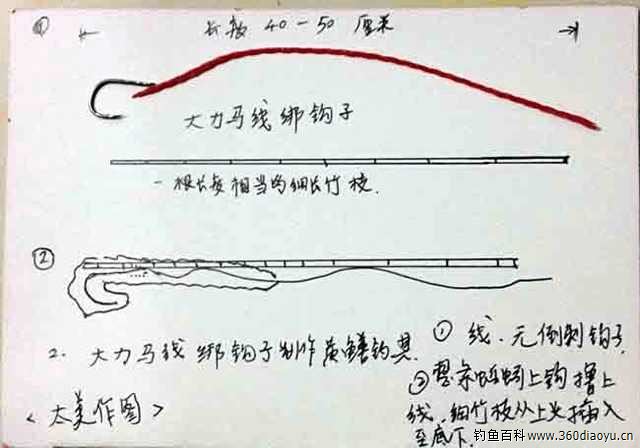 ①
长度 40-50 厘米
大力马线绑钩子
一根长度相当的细长竹枝.
②
2. 大力马线 绑钩子制作黄鳝钓具
<太美作图>
① 线. 无倒刺钩子
② 整条蚯蚓上钩撸上
线. 细竹枝从上头插入
至底下.
钓鱼百科—www.360diaoyu.cn